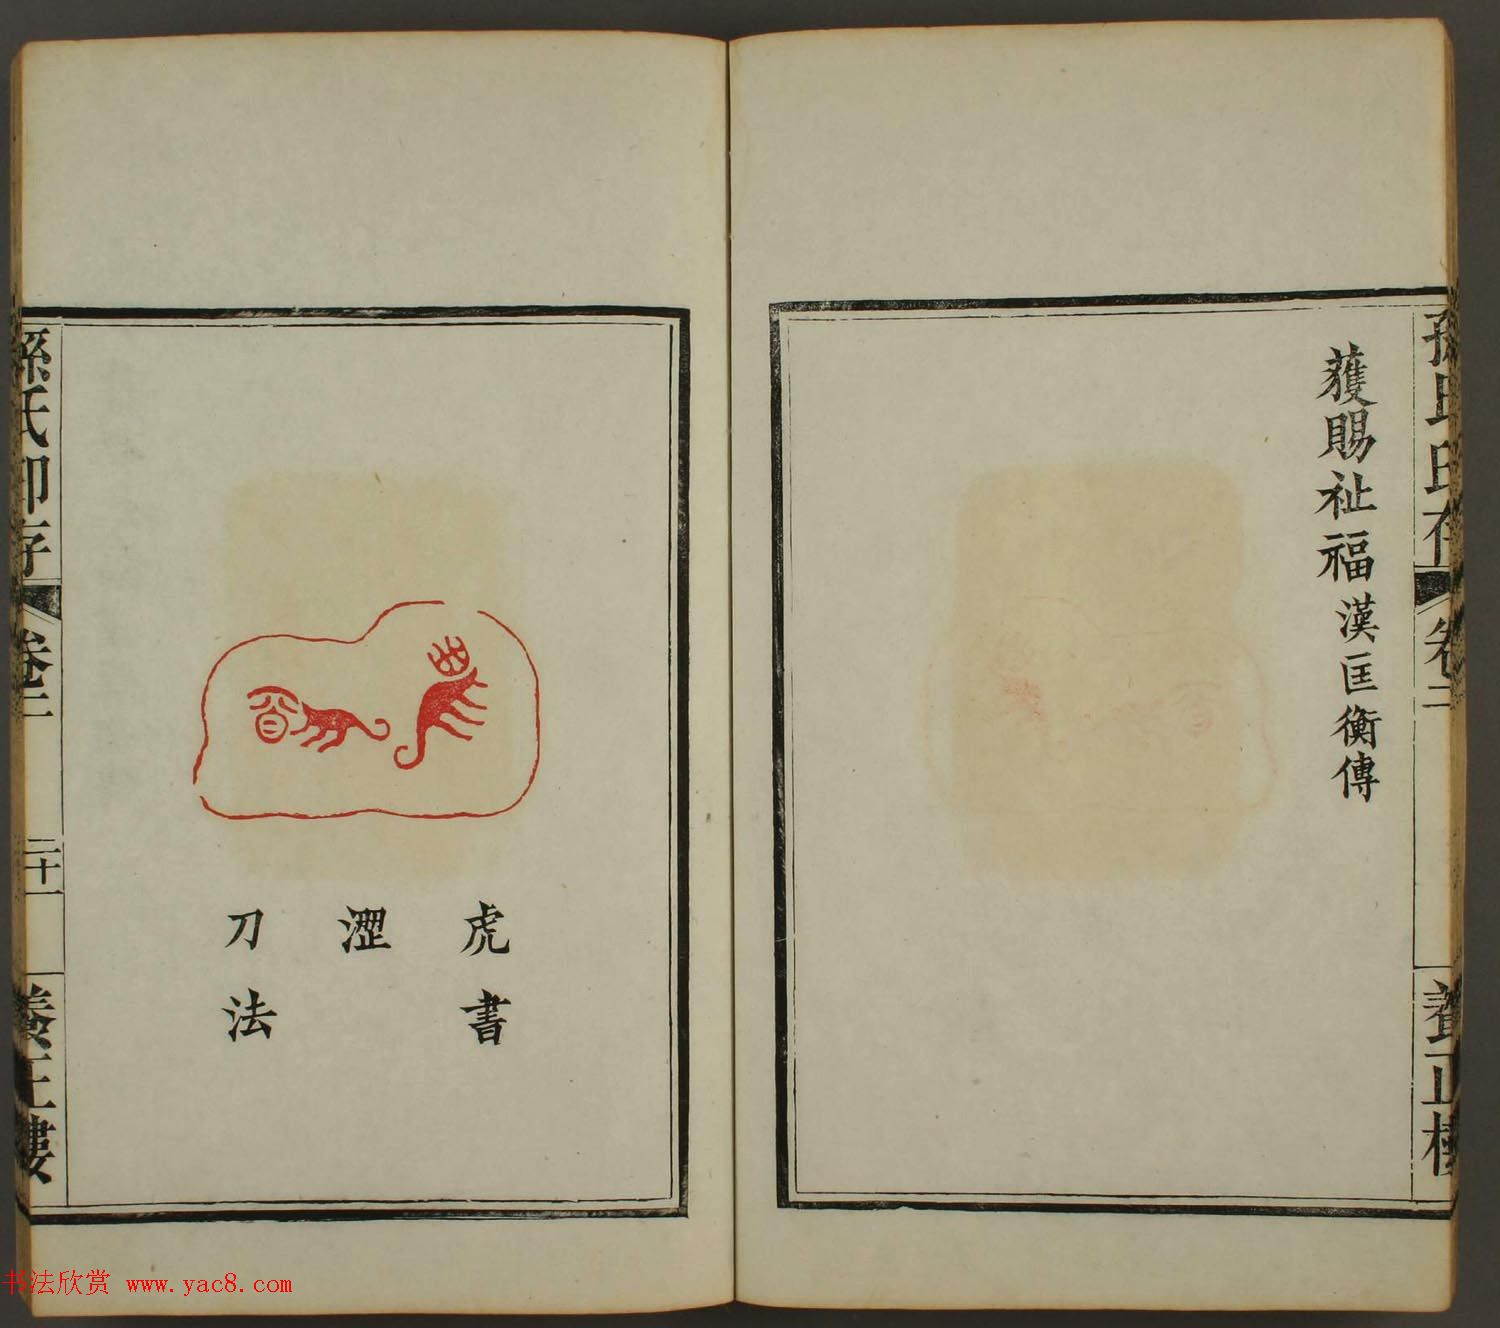 孫氏印存
卷二
養正樓
獲賜祉福 漢匡衡傳
虎書
澀
刀法
孫氏印存
卷二
二十一
養正樓
书法欣赏 www.yac8.com